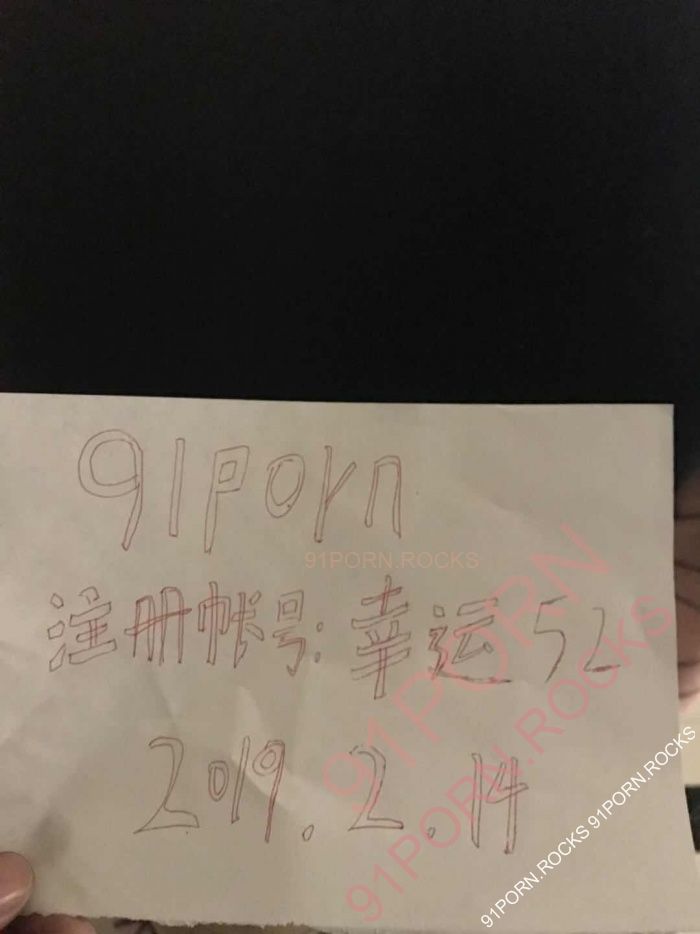 91porn
91PORN.ROCKS
注册帐号:幸运52
91PORN
91PORN.ROCKS
2019.2.14
91PORN.ROCKS 91PORN.ROCKS